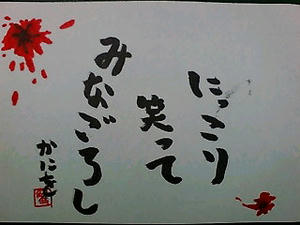 にっこり
笑って
みなごろし